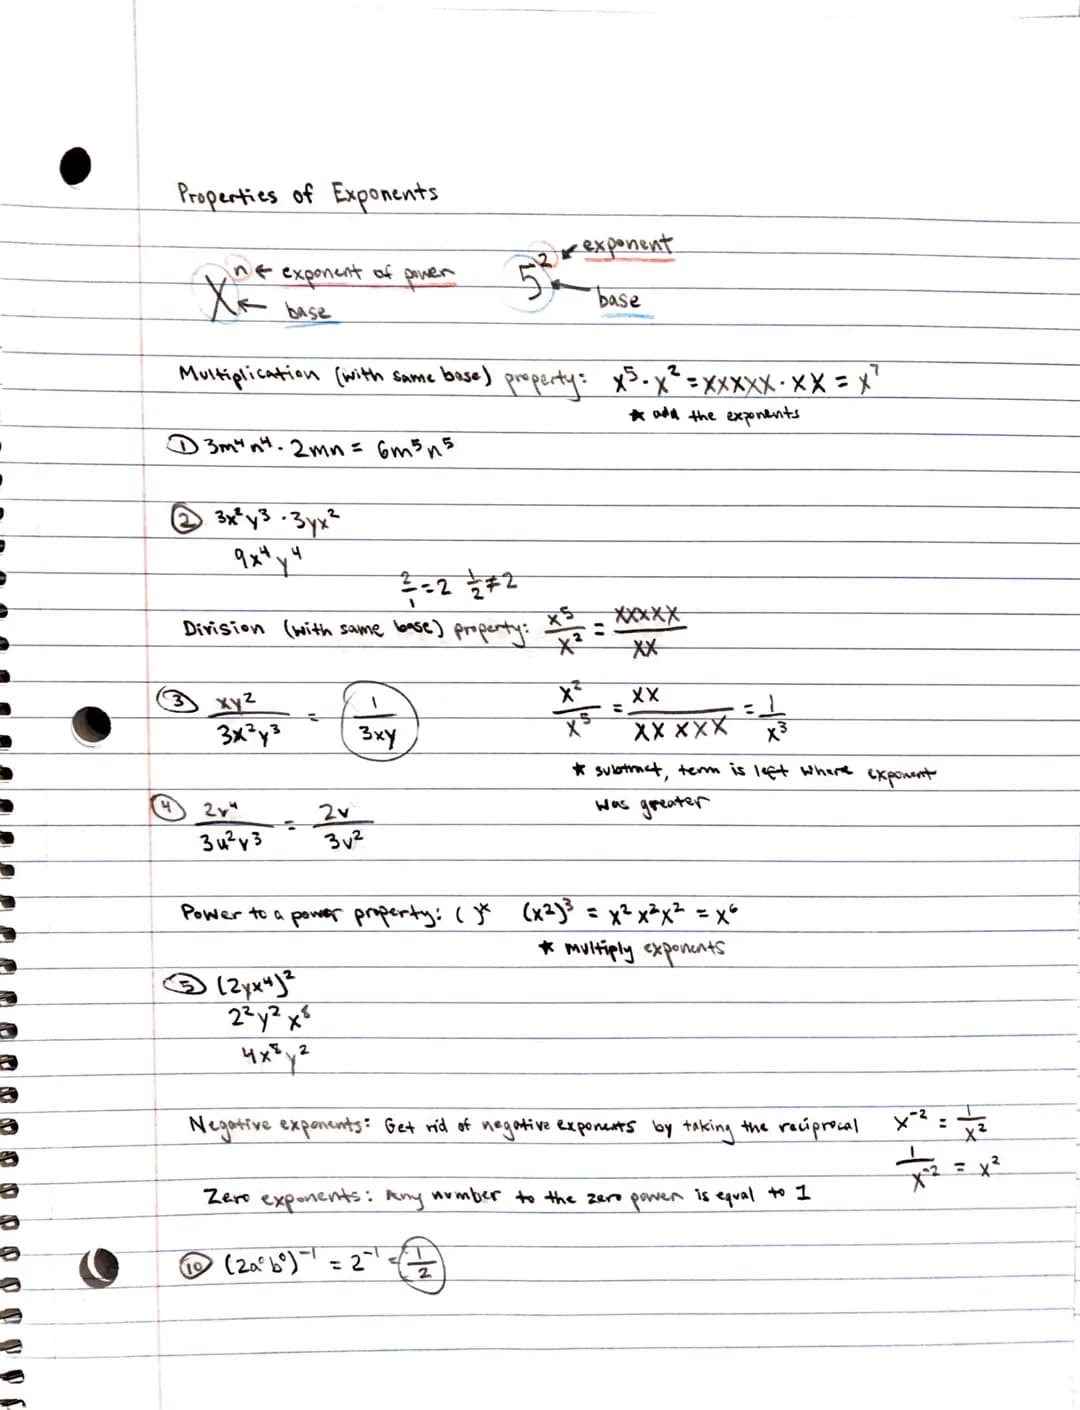 Properties of Exponents
xⁿ ← exponent of power
← base
5² ↙ exponent
← base
Multiplication (with same base) property: x⁵·x² = xxxxx·xx = x⁷
* add the exponents
① 3m⁴n⁴·2mn = 6m⁵n⁵
② 3x²y³·3yx²
9x⁴y⁴
2/1 = 2 1/2 ≠ 2
Division (with same base) property: x⁵/x² = xxxxx/xx
③ xy²/3x²y³ = 1/3xy
x²/x⁵ = xx/xxxxx = 1/x³
* subtract, term is left where exponent
was greater
④ 2v⁴/3u²v³ = 2v/3v²
Power to a power property: ( )ˣ (x²)³ = x²x²x² = x⁶
* multiply exponents
⑤ (2yx⁴)²
2²y²x⁸
4x⁸y²
Negative exponents: Get rid of negative exponents by taking the reciprocal x⁻² = 1/x²
1/x⁻² = x²
Zero exponents: Any number to the zero power is equal to 1
⑩ (2a⁰b⁰)⁻¹ = 2⁻¹ = 1/2